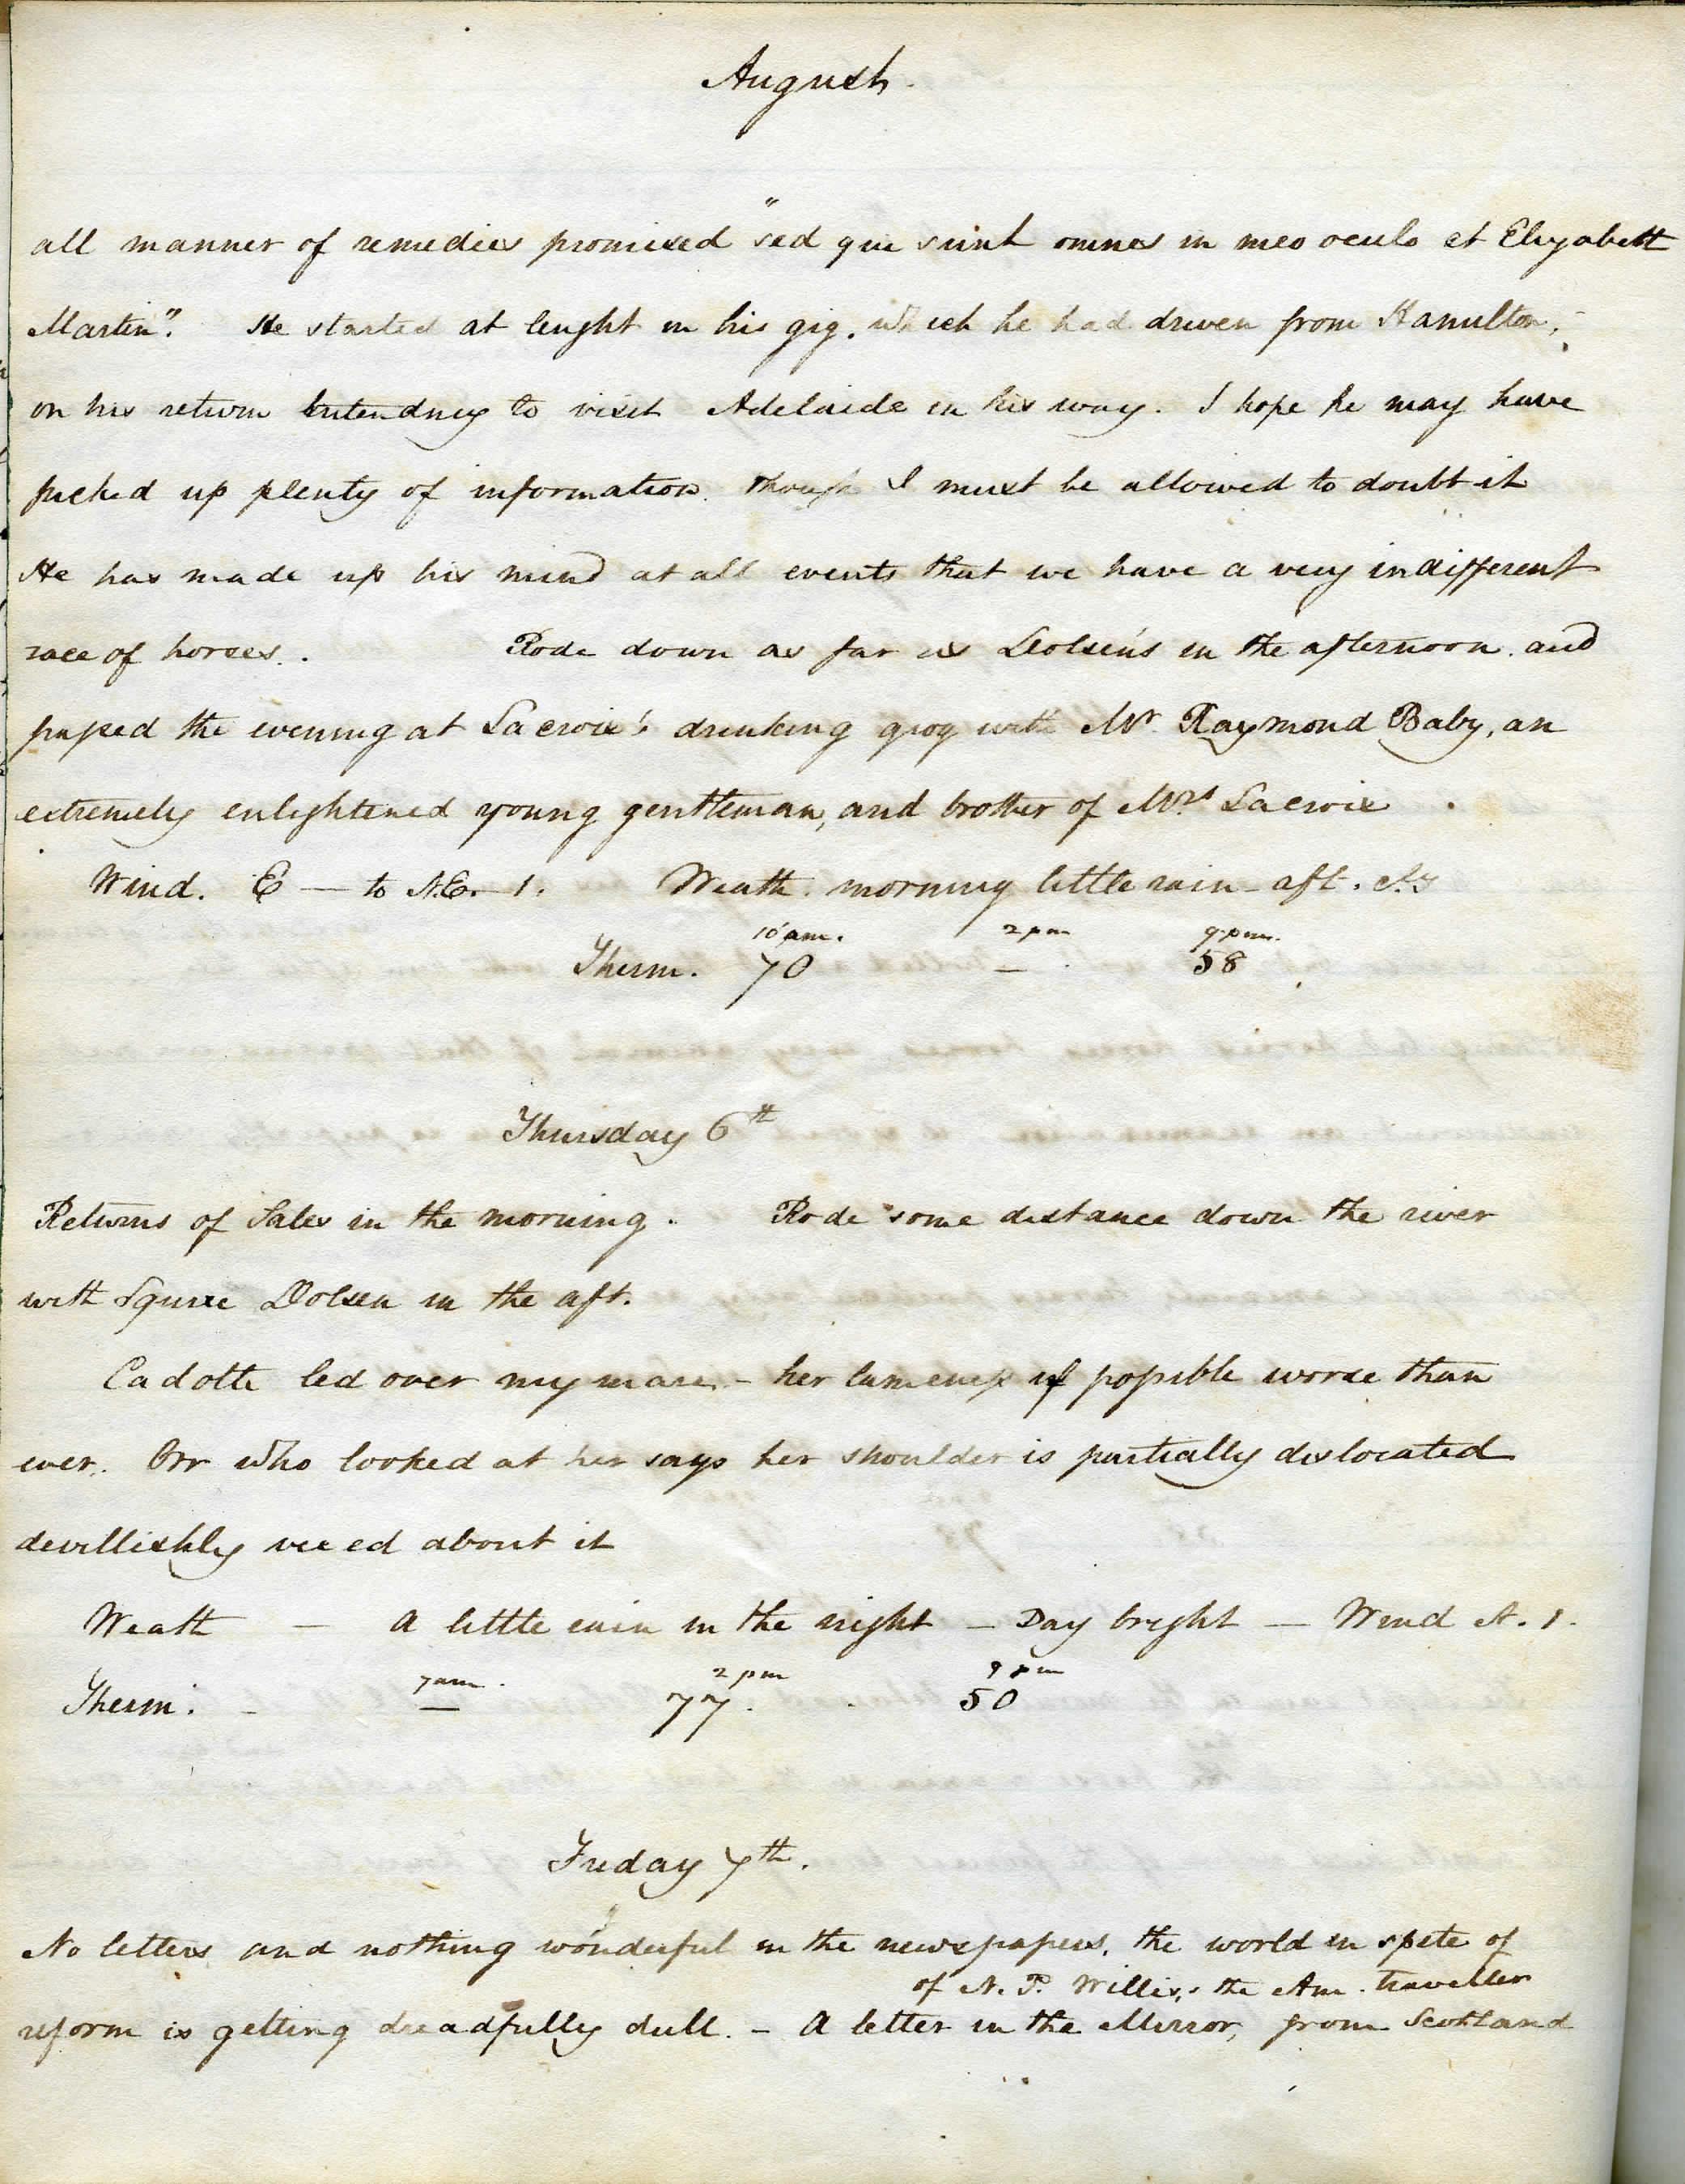 August.
all manner of remedies promised "sed que sunt omnes in meo oculo et Elizabett
Martin". He started at lenght in his gig, which he had driven from Hamilton,
on his return intending to visit Adelaide in his way. I hope he may have
picked up plenty of information. though I must be allowed to doubt it
He has made up his mind at all events that we have a very indifferent
race of horses. Rode down as far as Dolsen's in the afternoon. and
passed the evening at Lacroix's drinking grog with Mr. Raymond Baby, an
extremely enlightened young gentleman, and brother of Mrs Lacroix.
Wind. E — to N.E. 1. Weath. morning little rain – aft.
10 am. 2 pm 9 pm.
Therm. 70 – 58
Thursday 6th
Returns of Sales in the morning. Rode some distance down the river
with Squire Dolsen in the aft.
Cadotte led over my mare – her lameness if possible worse than
ever. Orr who looked at her says her shoulder is partially dislocated
devillishly vexed about it
Weath — A little rain in the night – Day bright — Wind N. 1.
7 am. 2 pm 9 pm
Therm. – — 77. 50
Friday 7th.
No letters and nothing wonderful in the newspapers, the world in spite of
of N. P. Willis, the Am. traveller
reform is getting dreadfully dull. – A letter in the Mirror, from Scotland